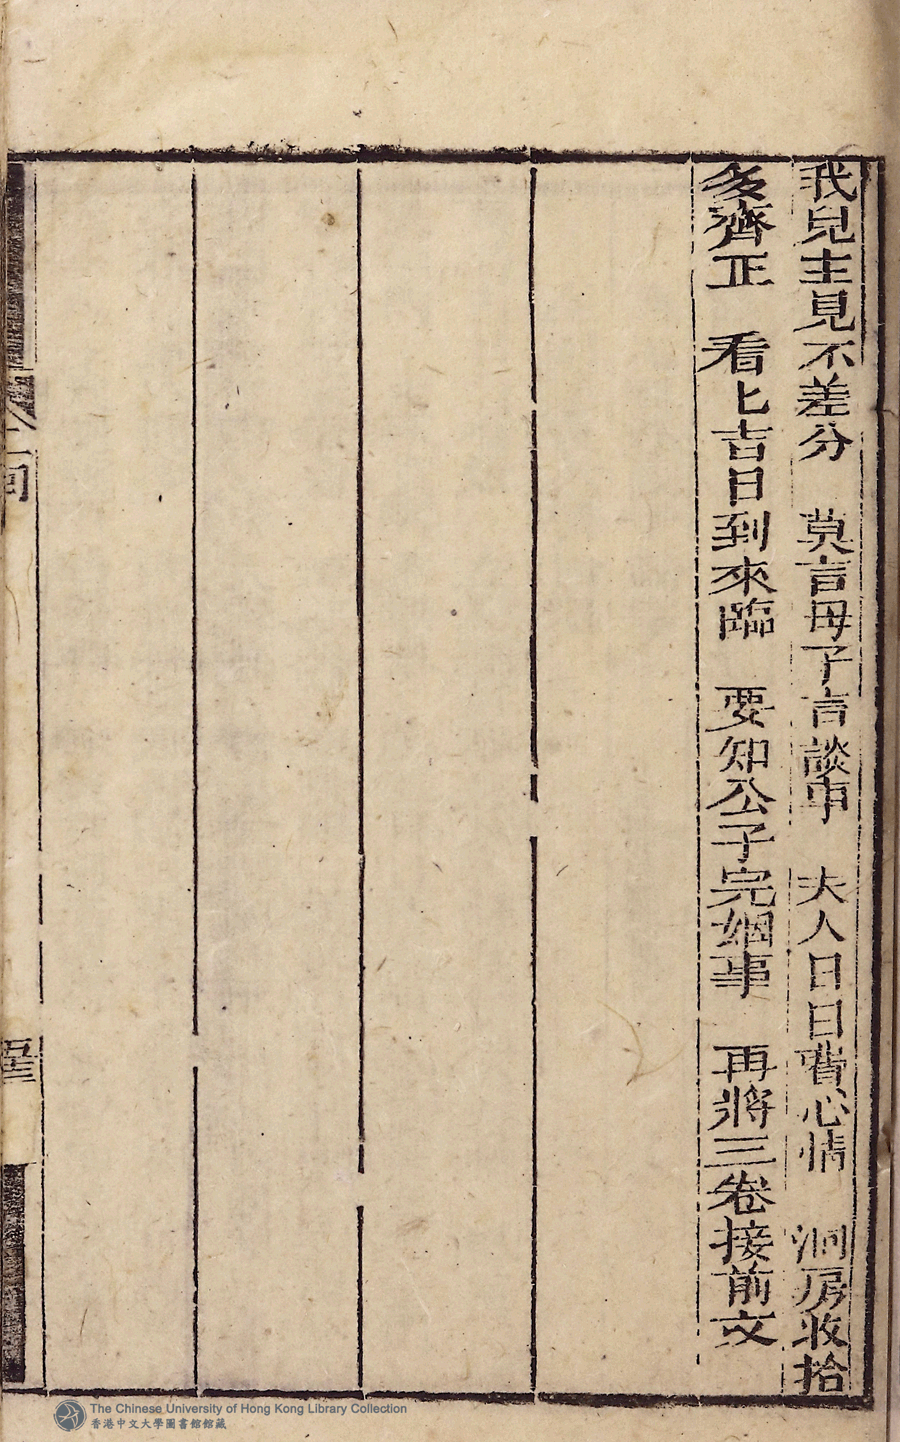 我兒主見不差分　莫言母子言談事　夫人日日費心情　洞房收拾
多齊正　看匕吉日到來臨　要知公子完姻事　再將三卷接前文
The Chinese University of Hong Kong Library Collection
香港中文大學圖書館館藏